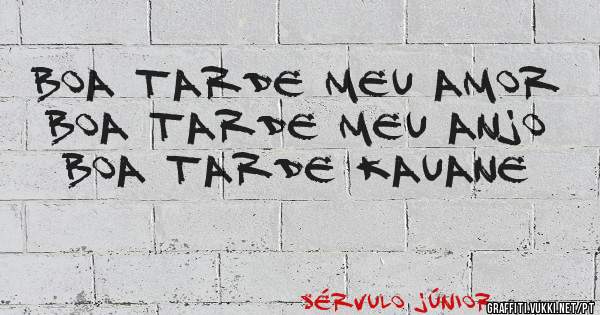 BOA TARDE MEU AMOR
BOA TARDE MEU ANJO
BOA TARDE KAUANE
SÉRVULO JÚNIOR
GRAFFITI.VUKKI.NET/PT